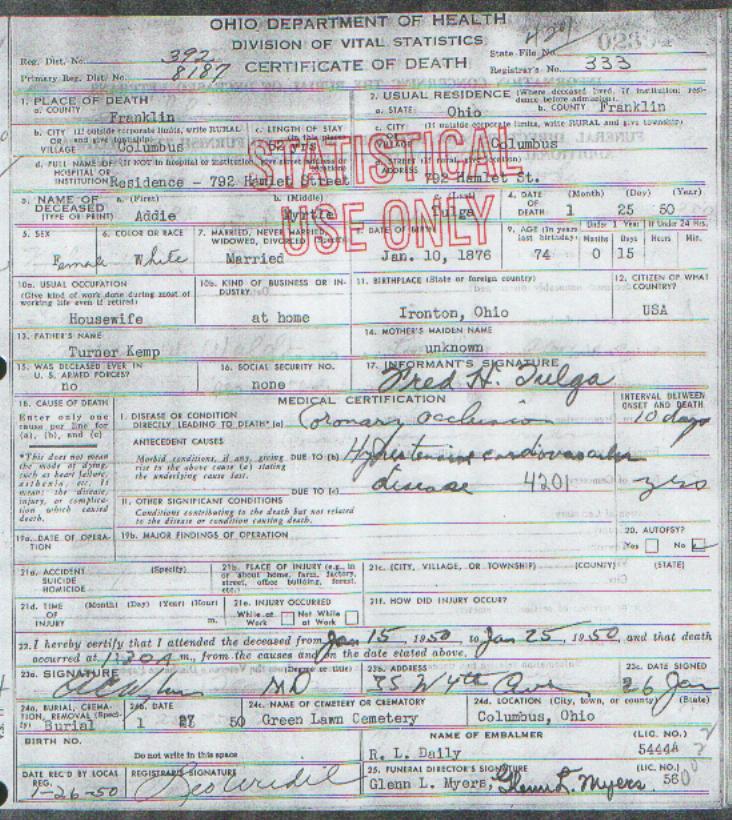 OHIO DEPARTMENT OF HEALTH
DIVISION OF VITAL STATISTICS
CERTIFICATE OF DEATH
Reg. Dist. No. 392
Primary Reg. Dist. No. 8187
State File No.
Registrar's No. 333
1. PLACE OF DEATH
a. COUNTY Franklin
2. USUAL RESIDENCE (Where deceased lived. If institution: residence before admission).
a. STATE Ohio b. COUNTY Franklin
b. CITY (If outside corporate limits, write RURAL OR and give township) VILLAGE Columbus
c. LENGTH OF STAY (in this place)
c. CITY (If outside corporate limits, write RURAL and give township) Columbus
d. FULL NAME OF (If NOT in hospital or institution, give street address or location) HOSPITAL OR INSTITUTION Residence - 792 Hamlet Street
d. STREET (If rural, give location) ADDRESS 792 Hamlet St.
STATISTICAL
USE ONLY
3. NAME OF DECEASED (TYPE OR PRINT)
a. (First) Addie
b. (Middle) Myrtle
c. (Last) Tulga
4. DATE OF DEATH (Month) (Day) (Year) 1 25 50
5. SEX Female
6. COLOR OR RACE White
7. MARRIED, NEVER MARRIED, WIDOWED, DIVORCED (Specify) Married
8. DATE OF BIRTH Jan. 10, 1876
9. AGE (In years last birthday) 74
Under 1 Year Months 0 Days 15
If Under 24 Hrs. Hours Min.
10a. USUAL OCCUPATION (Give kind of work done during most of working life even if retired) Housewife
10b. KIND OF BUSINESS OR INDUSTRY at home
11. BIRTHPLACE (State or foreign country) Ironton, Ohio
12. CITIZEN OF WHAT COUNTRY? USA
13. FATHER'S NAME Turner Kemp
14. MOTHER'S MAIDEN NAME unknown
15. WAS DECEASED EVER IN U. S. ARMED FORCES? no
16. SOCIAL SECURITY NO. none
17. INFORMANT'S SIGNATURE Fred H. Tulga
18. CAUSE OF DEATH
Enter only one cause per line for (a), (b), and (c)
*This does not mean the mode of dying, such as heart failure, asthenia, etc. It means the disease, injury, or complication which caused death.
MEDICAL CERTIFICATION
INTERVAL BETWEEN ONSET AND DEATH
I. DISEASE OR CONDITION DIRECTLY LEADING TO DEATH* (a) Coronary occlusion 10 days
ANTECEDENT CAUSES
Morbid conditions, if any, giving rise to the above cause (a) stating the underlying cause last.
DUE TO (b) Hypertensive cardiovascular
DUE TO (c) disease 4201 yrs
II. OTHER SIGNIFICANT CONDITIONS
Conditions contributing to the death but not related to the disease or condition causing death.
19a. DATE OF OPERATION
19b. MAJOR FINDINGS OF OPERATION
20. AUTOPSY?
Yes No
21a. ACCIDENT SUICIDE HOMICIDE (Specify)
21b. PLACE OF INJURY (e.g., in or about home, farm, factory, street, office building, forest, etc.)
21c. (CITY, VILLAGE, OR TOWNSHIP) (COUNTY) (STATE)
21d. TIME OF INJURY (Month) (Day) (Year) (Hour) m.
21e. INJURY OCCURRED While at Work Not While at Work
21f. HOW DID INJURY OCCUR?
22. I hereby certify that I attended the deceased from Jan 15, 1950, to Jan 25, 1950, and that death
occurred at 1:30A m., from the causes and on the date stated above.
23a. SIGNATURE (Degree or title) MD
23b. ADDRESS 35 W 4th Ave
23c. DATE SIGNED 26 Jan
24a. BURIAL, CREMATION, REMOVAL (Specify) Burial
24b. DATE 1 27 50
24c. NAME OF CEMETERY OR CREMATORY Green Lawn Cemetery
24d. LOCATION (City, town, or county) (State) Columbus, Ohio
BIRTH NO.
Do not write in this space
NAME OF EMBALMER R. L. Daily
(LIC. NO.) 5444A
DATE REC'D BY LOCAL REG. 1-26-50
REGISTRAR'S SIGNATURE
25. FUNERAL DIRECTOR'S SIGNATURE Glenn L. Myers, Glenn L. Myers
(LIC. NO.) 560